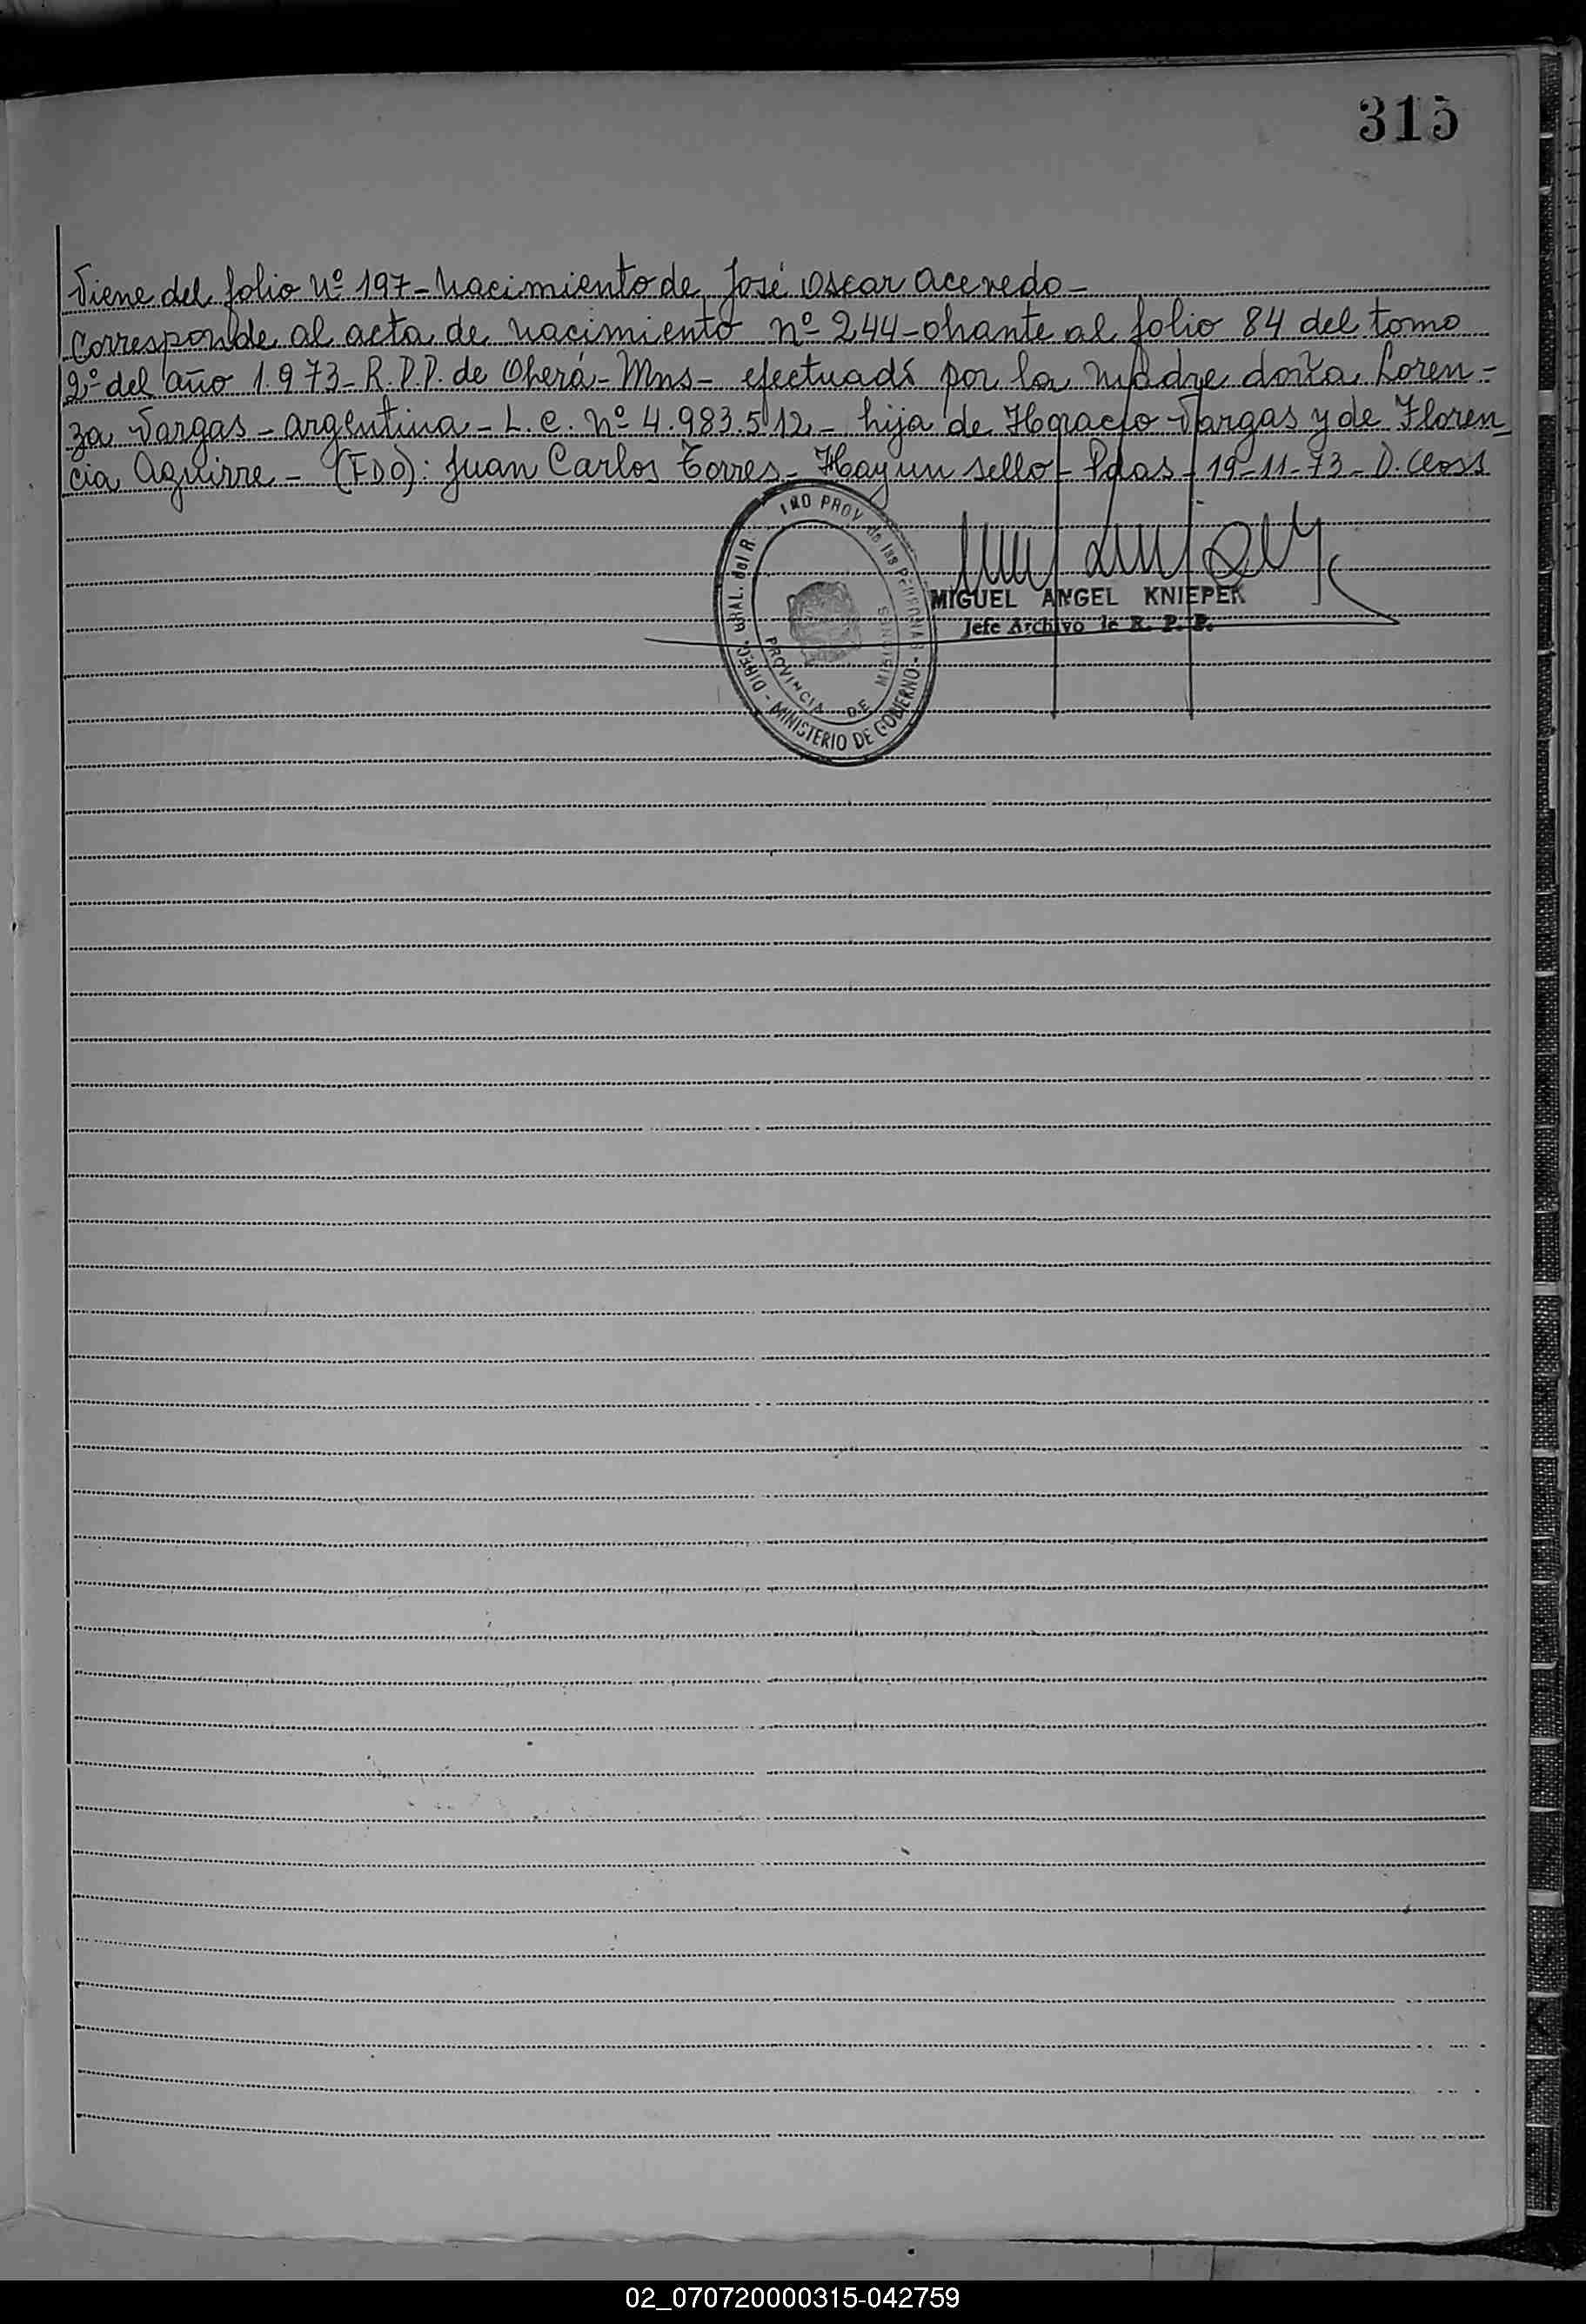 315
Viene del folio Nº 197 - Nacimiento de José Oscar Acevedo -
Corresponde al acta de nacimiento nº 244 - obrante al folio 84 del tomo
2º del año 1.973 - R.P.P. de Oberá - Mns - efectuada por la madre doña Loren -
za Vargas - argentina - L. C. Nº 4.983.512 - hija de Horacio Vargas y de Floren
cia Aguirre - (FDO): Juan Carlos Torres - Hay un sello - Pdas - 19-11-73 - D. Closs
DIREC. GRAL. del R. PROV. de las PERSONAS - MINISTERIO DE GOBIERNO -
PROVINCIA DE MISIONES
MIGUEL ANGEL KNIEPER
Jefe Archivo de R. P. P.
02_070720000315-042759